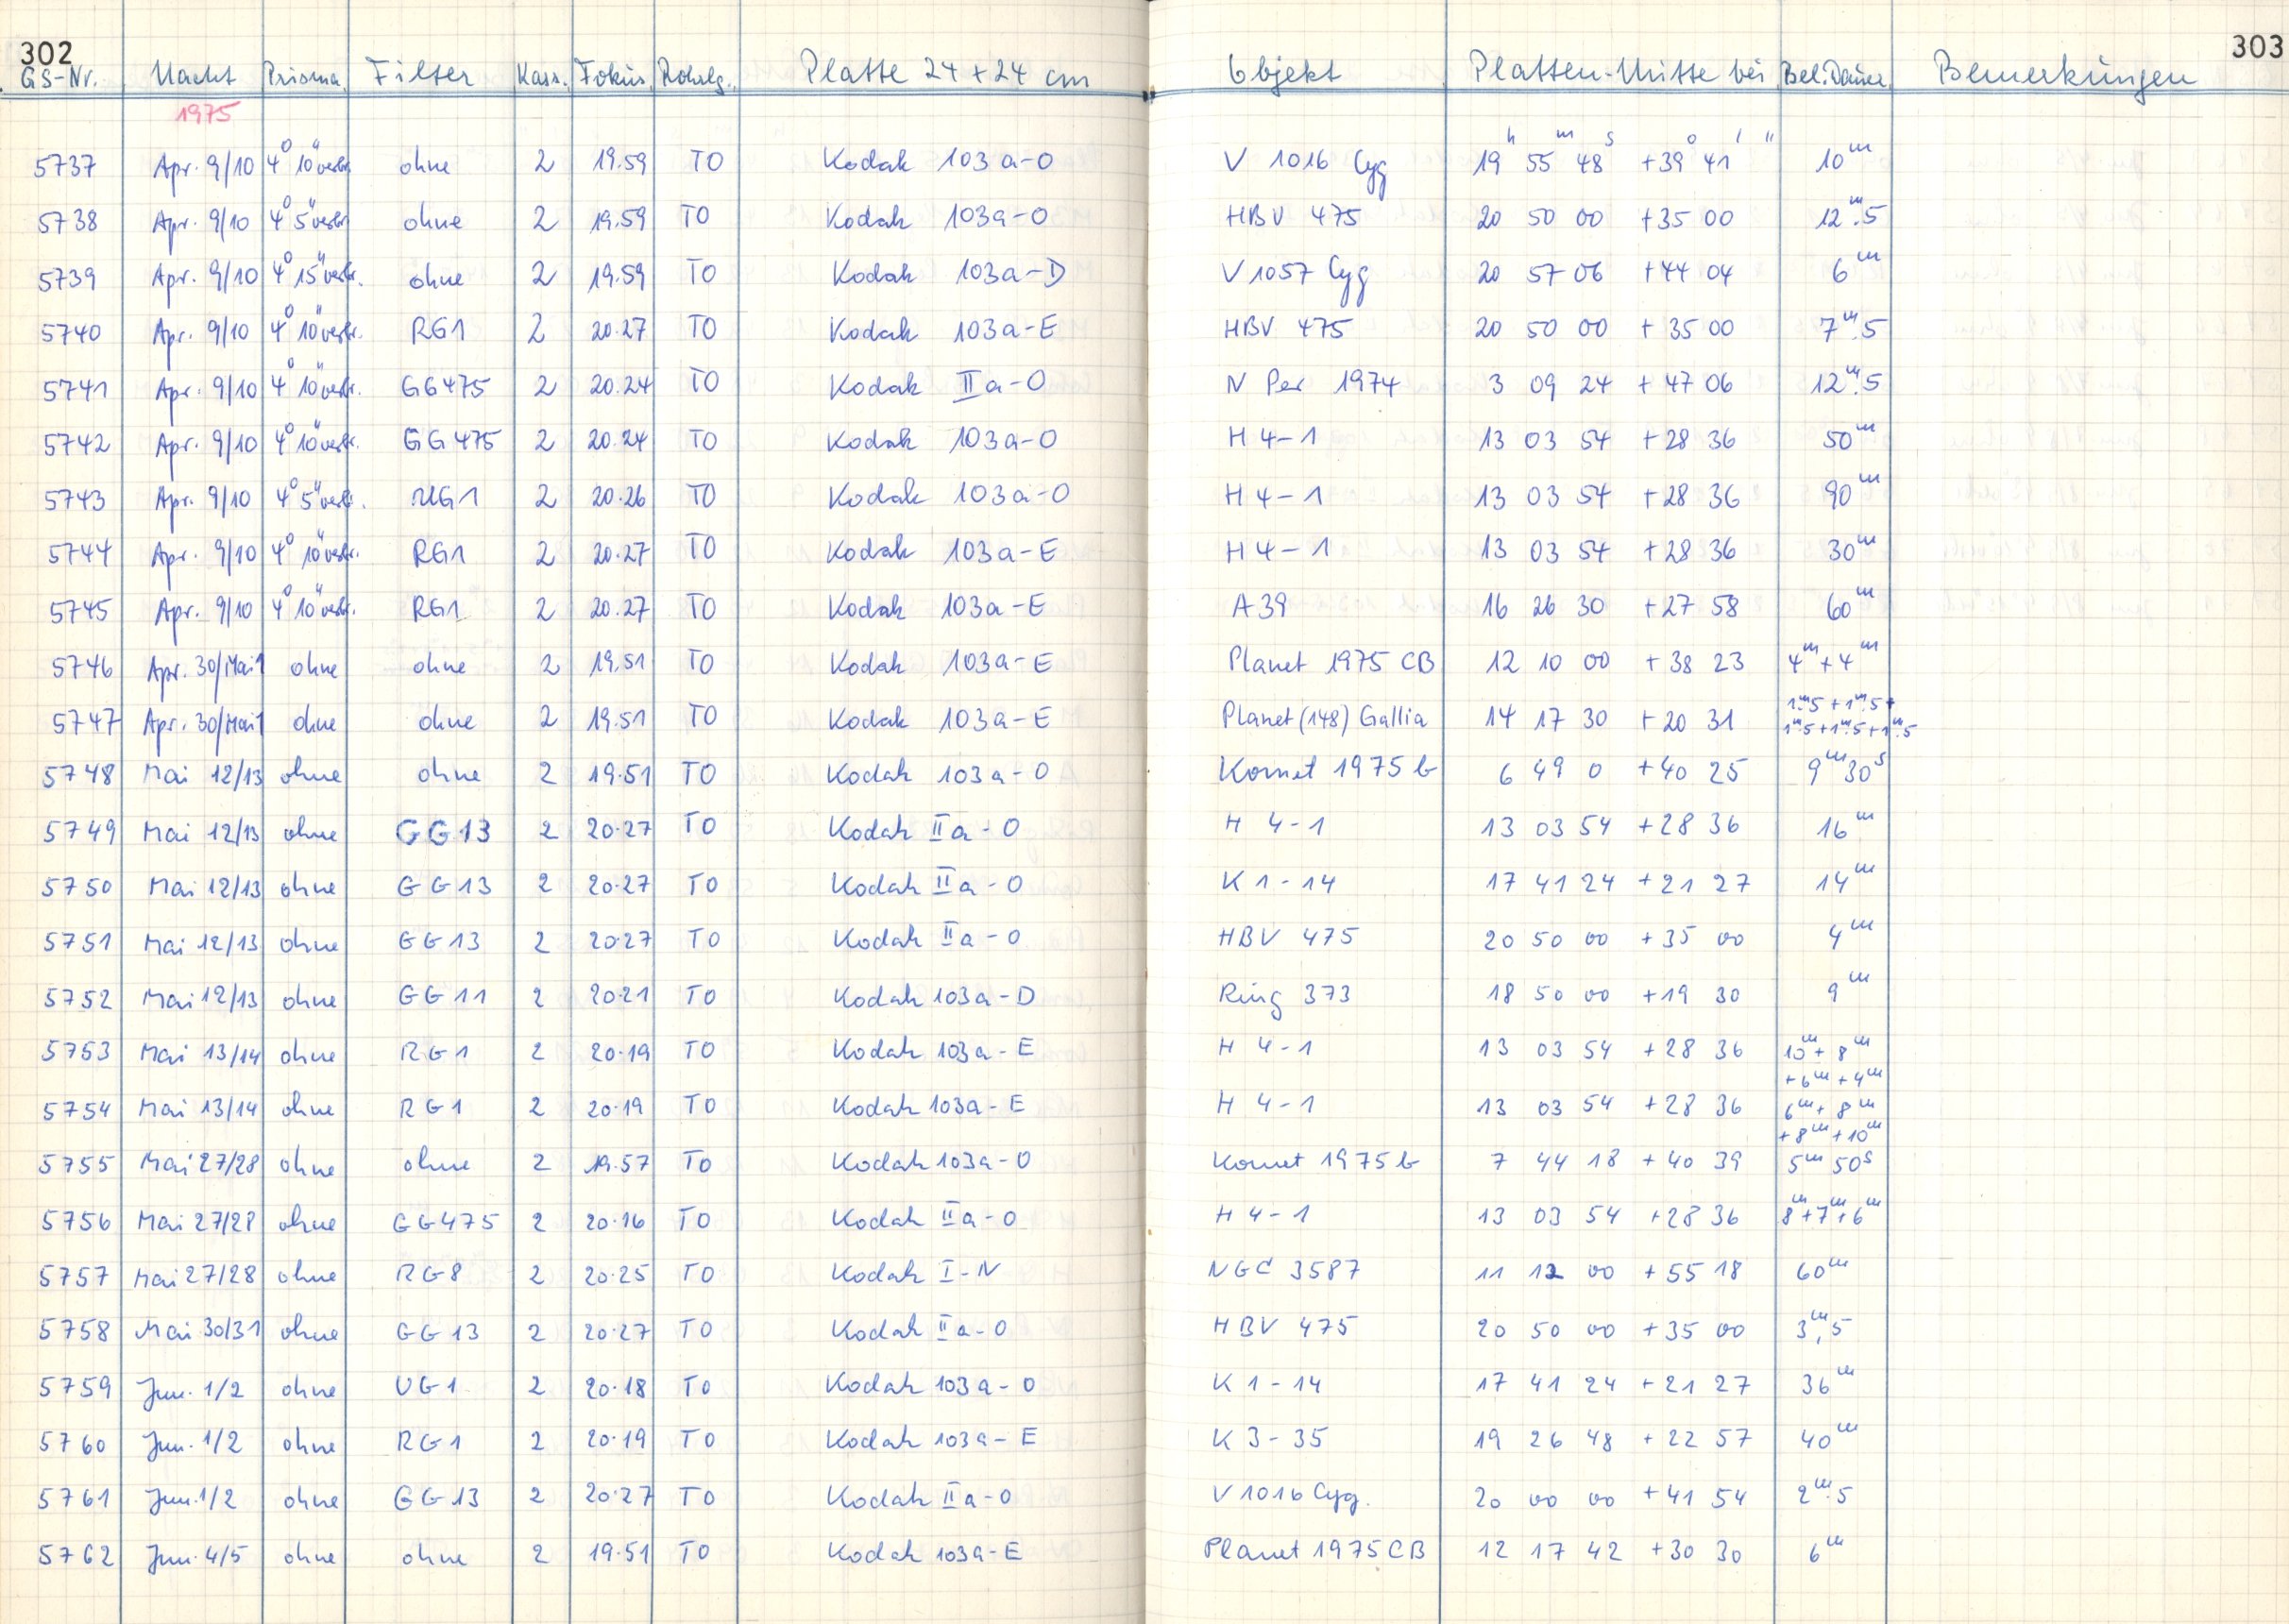 302 303
GS-Nr. Nacht Prisma Filter Kass. Fokus Rohrlg. Platte 24 + 24 cm Objekt Platten-Mitte bei Bel.Dauer Bemerkungen
1975
5737 Apr. 9/10 4° 10" verbr. ohne 2 19.59 TO Kodak 103a-O V 1016 Cyg 19ʰ 55ᵐ 48ˢ +39° 41' " 10ᵐ
5738 Apr. 9/10 4° 5" verbr. ohne 2 19.59 TO Kodak 103a-O HBV 475 20 50 00 +35 00 12ᵐ.5
5739 Apr. 9/10 4° 15" verbr. ohne 2 19.59 TO Kodak 103a-D V 1057 Cyg 20 57 06 +44 04 6ᵐ
5740 Apr. 9/10 4° 10" verbr. RG1 2 20.27 TO Kodak 103a-E HBV 475 20 50 00 +35 00 7ᵐ.5
5741 Apr. 9/10 4° 10" verbr. GG475 2 20.24 TO Kodak IIa-O N Per 1974 3 09 24 +47 06 12ᵐ.5
5742 Apr. 9/10 4° 10" verbr. GG475 2 20.24 TO Kodak 103a-O H 4-1 13 03 54 +28 36 50ᵐ
5743 Apr. 9/10 4° 5" verbr. UG1 2 20.26 TO Kodak 103a-O H 4-1 13 03 54 +28 36 90ᵐ
5744 Apr. 9/10 4° 10" verbr. RG1 2 20.27 TO Kodak 103a-E H 4-1 13 03 54 +28 36 30ᵐ
5745 Apr. 9/10 4° 10" verbr. RG1 2 20.27 TO Kodak 103a-E A 39 16 26 30 +27 58 60ᵐ
5746 Apr. 30/Mai 1 ohne ohne 2 19.51 TO Kodak 103a-E Planet 1975 CB 12 10 00 +38 23 4ᵐ+4ᵐ
5747 Apr. 30/Mai 1 ohne ohne 2 19.51 TO Kodak 103a-E Planet (148) Gallia 14 17 30 +20 31 1ᵐ.5+1ᵐ.5+
1ᵐ.5+1ᵐ.5+1ᵐ.5
5748 Mai 12/13 ohne ohne 2 19.51 TO Kodak 103a-O Komet 1975 b 6 49 0 +40 25 9ᵐ30ˢ
5749 Mai 12/13 ohne GG13 2 20.27 TO Kodak IIa-O H 4-1 13 03 54 +28 36 16ᵐ
5750 Mai 12/13 ohne GG13 2 20.27 TO Kodak IIa-O K 1-14 17 41 24 +21 27 14ᵐ
5751 Mai 12/13 ohne GG13 2 20.27 TO Kodak IIa-O HBV 475 20 50 00 +35 00 4ᵐ
5752 Mai 12/13 ohne GG11 2 20.21 TO Kodak 103a-D Ring 373 18 50 00 +19 30 9ᵐ
5753 Mai 13/14 ohne RG1 2 20.19 TO Kodak 103a-E H 4-1 13 03 54 +28 36 10ᵐ+8ᵐ
+6ᵐ+4ᵐ
5754 Mai 13/14 ohne RG1 2 20.19 TO Kodak 103a-E H 4-1 13 03 54 +28 36 6ᵐ+8ᵐ
+8ᵐ+10ᵐ
5755 Mai 27/28 ohne ohne 2 19.57 TO Kodak 103a-O Komet 1975 b 7 44 18 +40 39 5ᵐ 50ˢ
5756 Mai 27/28 ohne GG475 2 20.16 TO Kodak IIa-O H 4-1 13 03 54 +28 36 8ᵐ+7ᵐ+6ᵐ
5757 Mai 27/28 ohne RG8 2 20.25 TO Kodak I-N NGC 3587 11 12 00 +55 18 60ᵐ
5758 Mai 30/31 ohne GG13 2 20.27 TO Kodak IIa-O HBV 475 20 50 00 +35 00 3ᵐ,5
5759 Jun. 1/2 ohne UG1 2 20.18 TO Kodak 103a-O K 1-14 17 41 24 +21 27 36ᵐ
5760 Jun. 1/2 ohne RG1 2 20.19 TO Kodak 103a-E K 3-35 19 26 48 +22 57 40ᵐ
5761 Jun. 1/2 ohne GG13 2 20.27 TO Kodak IIa-O V 1016 Cyg. 20 00 00 +41 54 2ᵐ.5
5762 Jun. 4/5 ohne ohne 2 19.51 TO Kodak 103a-E Planet 1975 CB 12 17 42 +30 30 6ᵐ